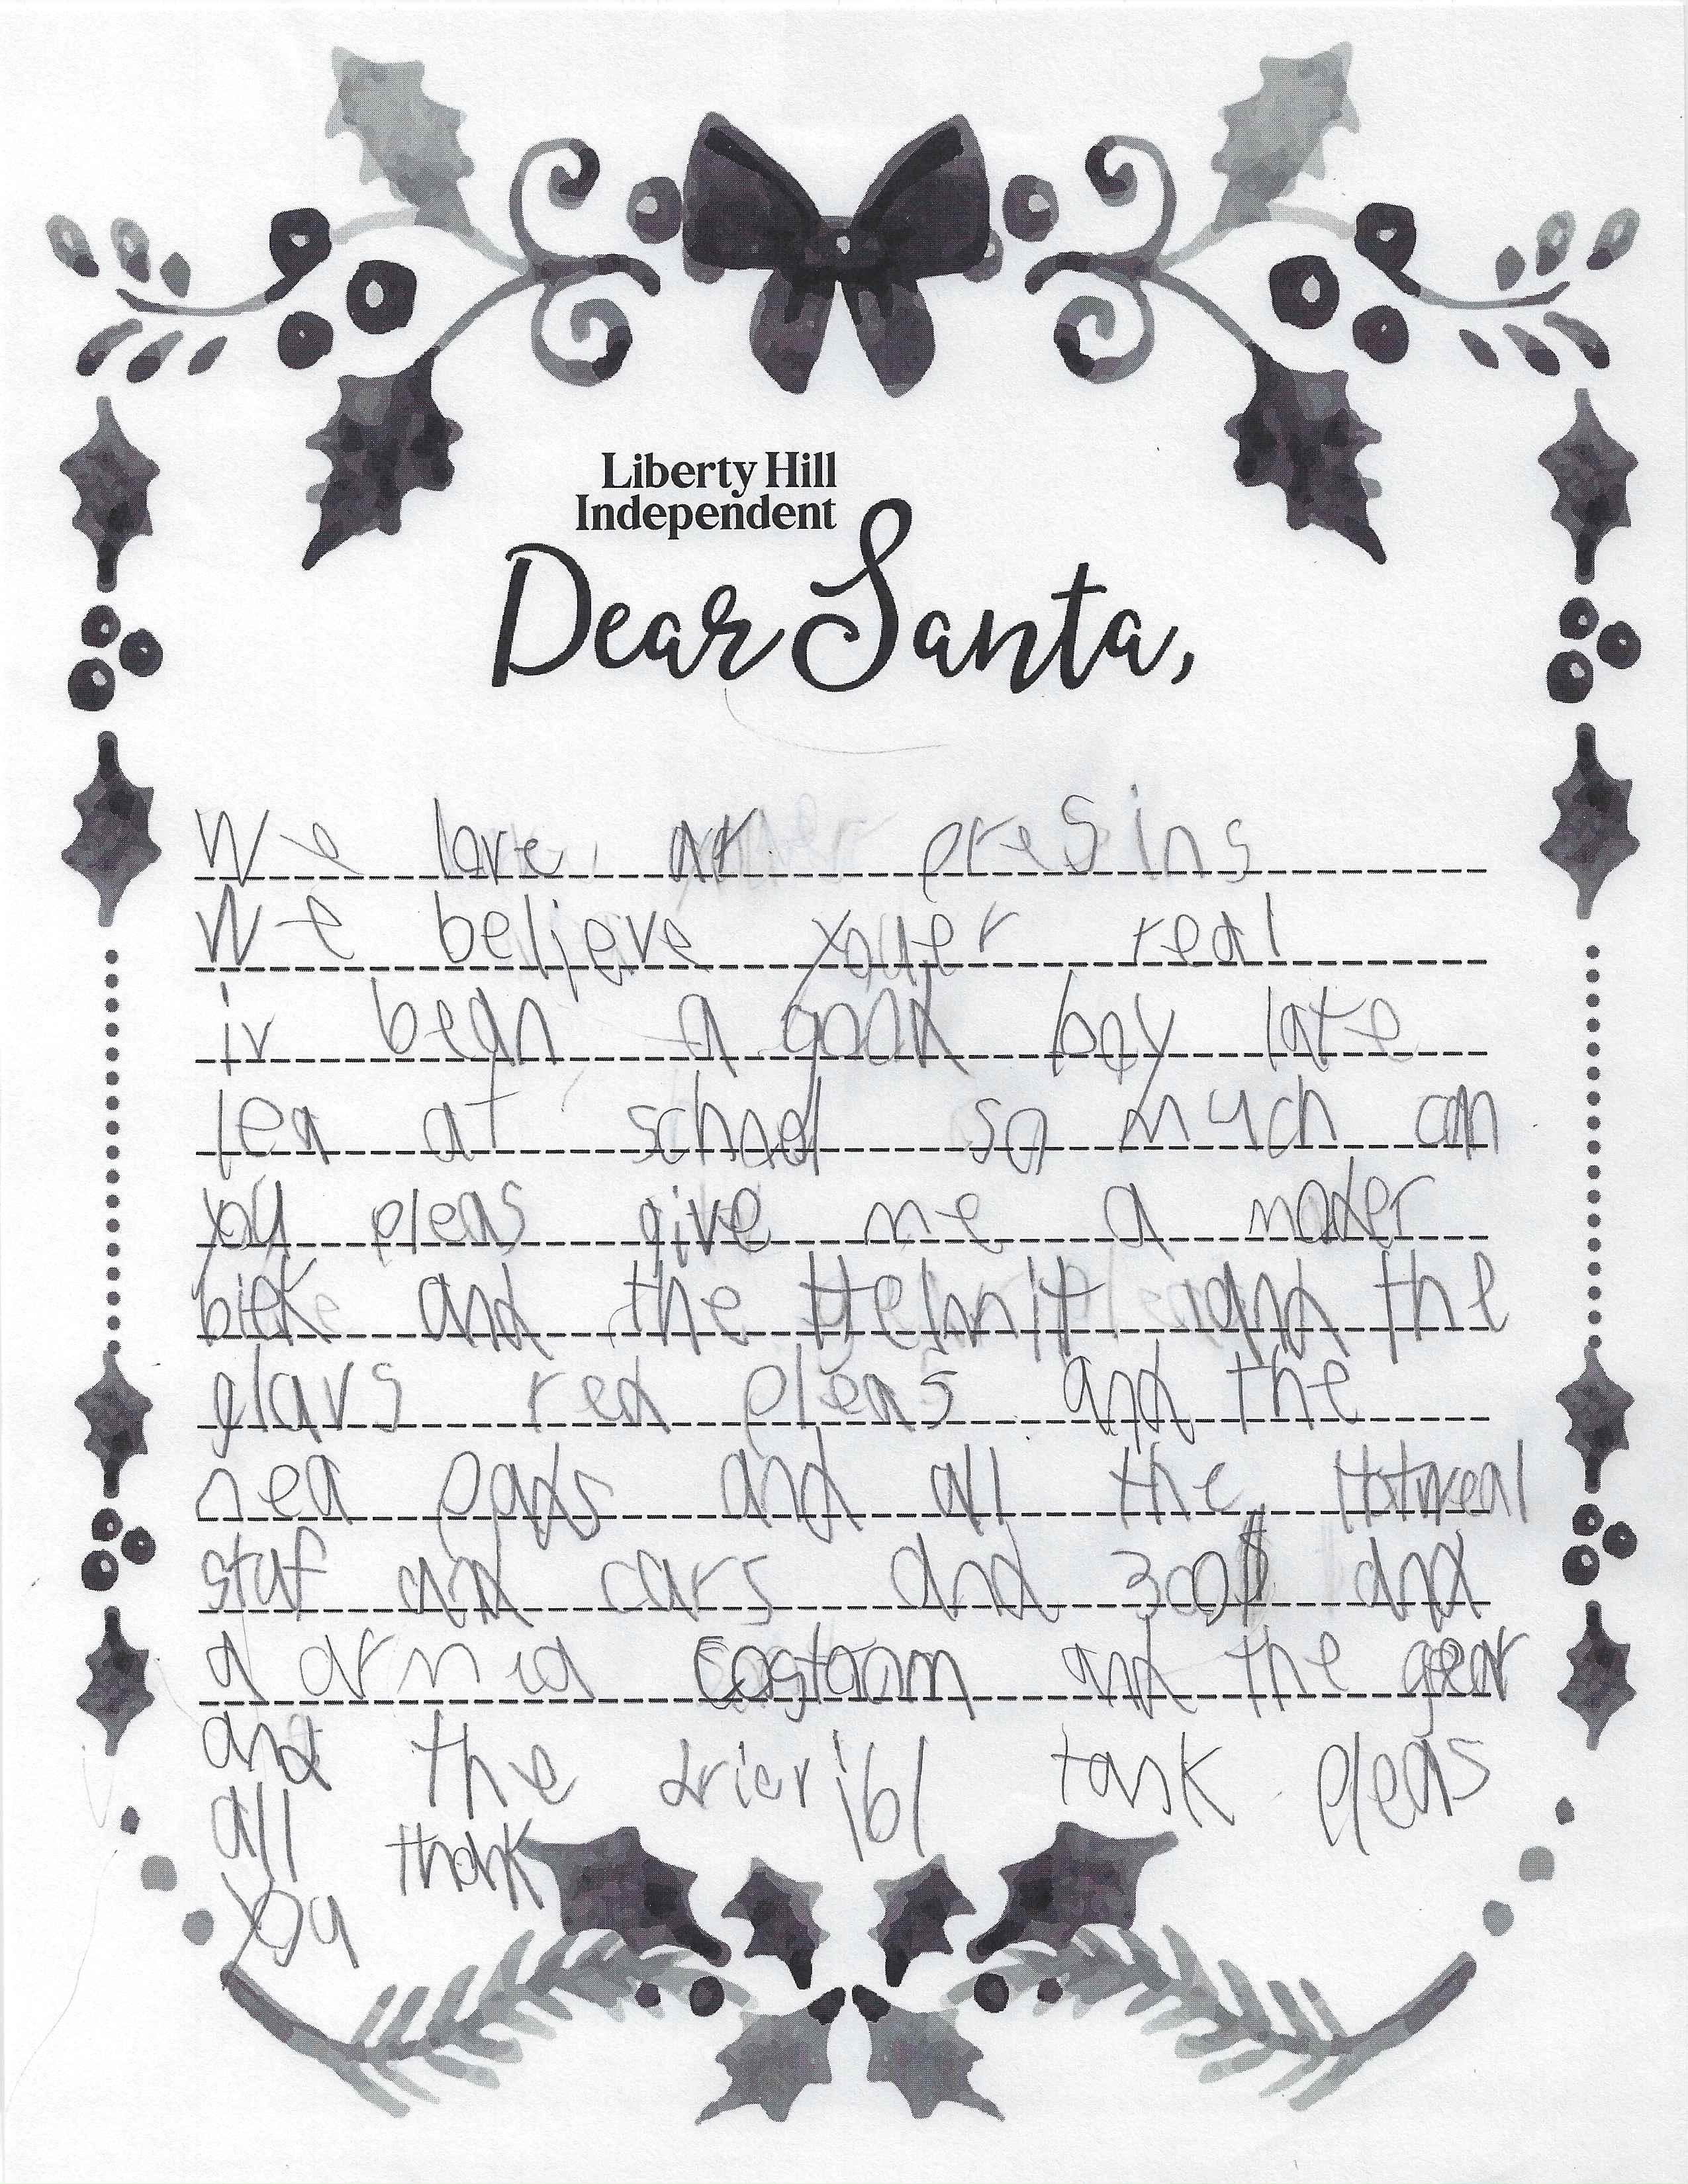 Liberty Hill
Independent
Dear Santa,
We love ar presins
We believe youer real
iv bean a good boy late
lea at school so much can
you pleas give me a moder
biek and the Helmit and the
glavs red pleas and the
nea pads and all the Hotweal
staf and cars and 300$ and
a armia castoom and the gear
and the drivribl tank pleas
all thank
you